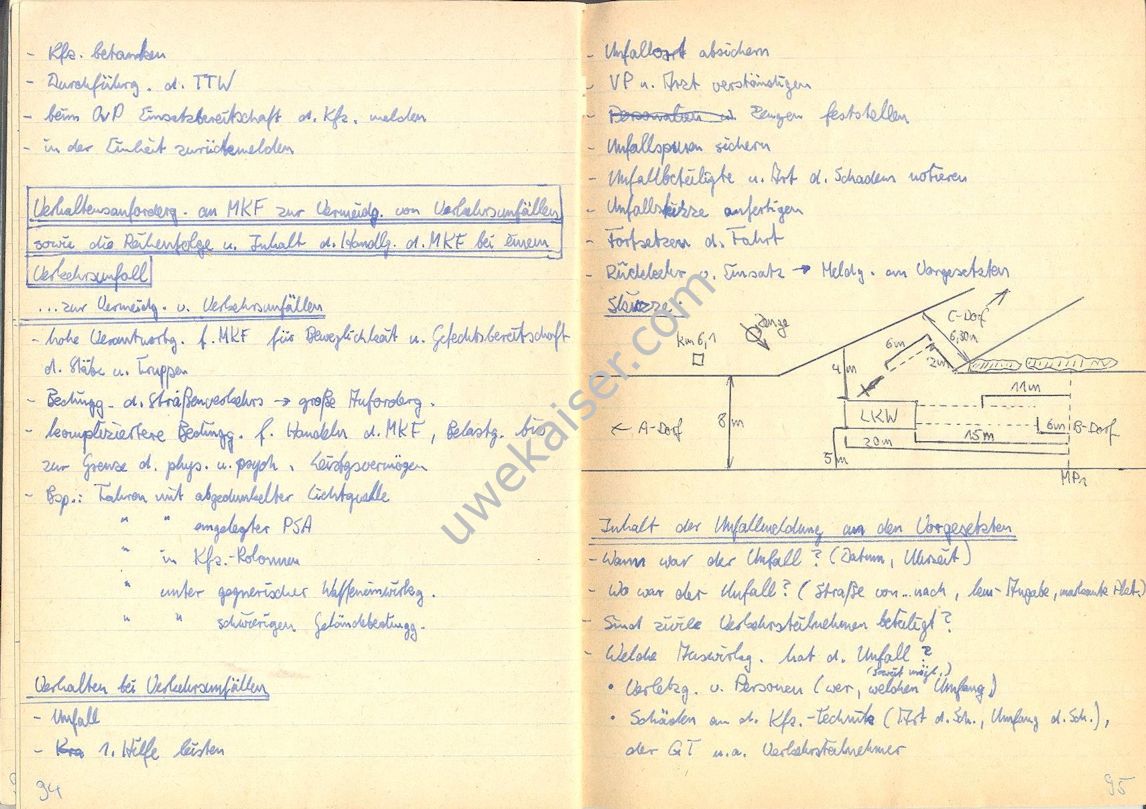 - Kfz. betanken
- Durchführg. d. TTW
- beim OvP Einsatzbereitschaft d. Kfz. melden
- in der Einheit zurückmelden
Verhaltensanforderg. an MKF zur Vermeidg. von Verkehrsunfällen
sowie die Reihenfolge u. Inhalt d. Handlg. d. MKF bei einem
Verkehrsunfall
...zur Vermeidg. v. Verkehrsunfällen
- hohe Verantwortg. f. MKF für Beweglichkeit u. Gefechtsbereitschaft
d. Stäbe u. Truppen
- Bedingg. d. Straßenverkehrs → große Anforderg.
- kompliziertere Bedingg. f. Handeln d. MKF, Belastg. bis
zur Grenze d. phys. u. psych. Leistgsvermögen
- Bsp.: Fahren mit abgedunkelter Lichtquelle
" " angelegter PSA
" in Kfz.-Kolonnen
" unter gegnerischer Waffeneinwirkg.
" " schwierigen Geländebedingg.
Verhalten bei Verkehrsunfällen
- Unfall
- 1. Hilfe leisten
94
- Unfallort absichern
- VP u. Arzt verständigen
- Personalien u. Zeugen feststellen
- Unfallspuren sichern
- Unfallbeteiligte u. Art d. Schadens notieren
- Unfallskizze anfertigen
- Fortsetzen d. Fahrt
- Rückkehr v. Einsatz → Meldg. an Vorgesetzten
Skizze:
km 6,1
Zeuge
C-Dorf
6,30m
6m
2m
4m
11m
8m
← A-Dorf
LKW
6m
B-Dorf
20m
15m
5m
Inhalt der Unfallmeldung an den Vorgesetzten
- Wann war der Unfall? (Datum, Uhrzeit)
- Wo war der Unfall? (Straße von...nach, km-Angabe, markante Pkt.)
- Sind zivile Verkehrsteilnehmer beteiligt?
- Welche Auswirkg. hat d. Unfall?
(soweit mögl.)
• Verletzg. v. Personen (wer, welchen Umfang)
• Schäden an d. Kfz.-Technik (Art d. Sch., Umfang d. Sch.),
der GT u.a. Verkehrsteilnehmer
95
uwekaiser.com